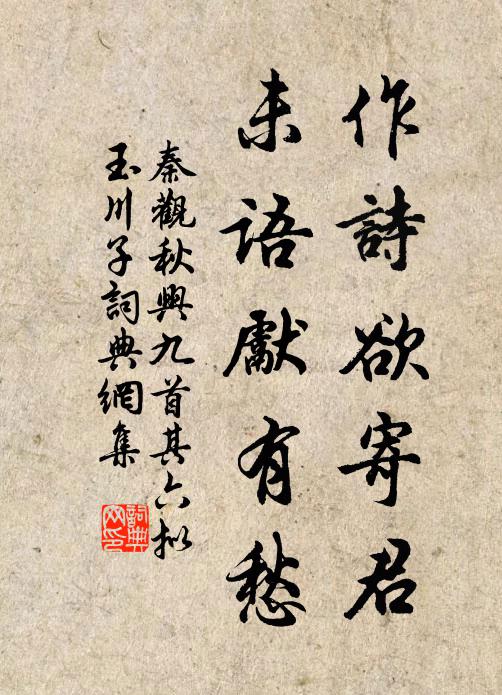 作詩欲寄君
未語獻有愁
秦觀秋興九首其六拟
玉川子詞典網集
詞典网印